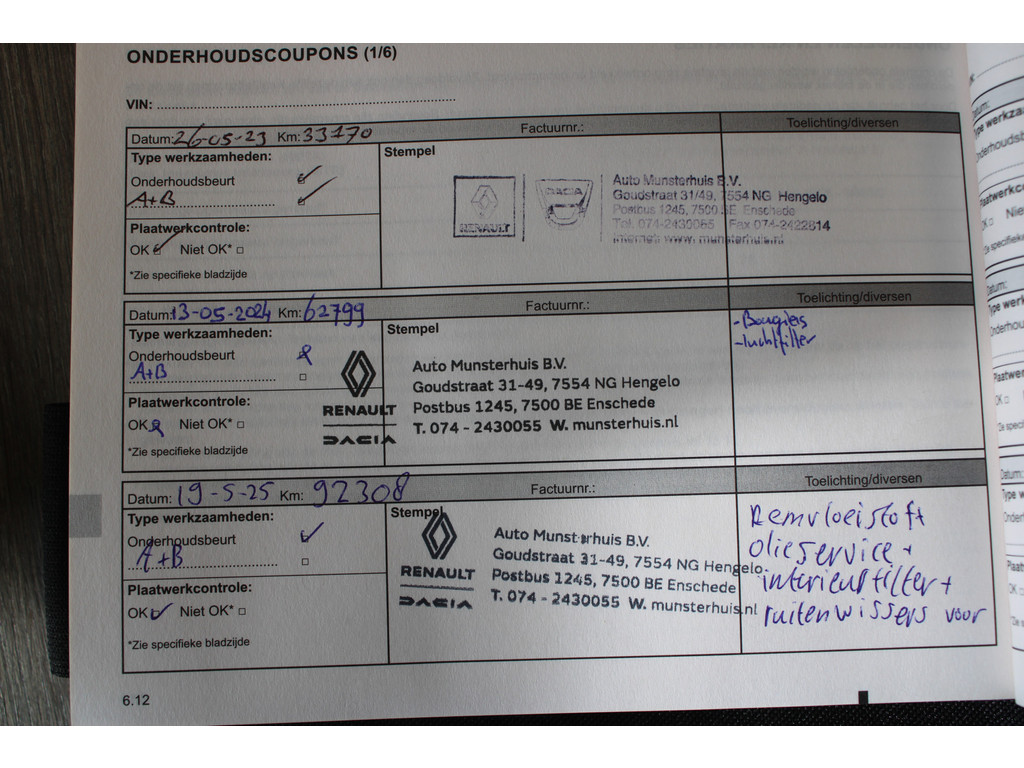 ONDERHOUDSCOUPONS (1/6)
VIN:
Datum: 26-05-23 Km: 33170 Factuurnr.: Toelichting/diversen
Type werkzaamheden:
Stempel
Onderhoudsbeurt
A+B
Plaatwerkcontrole:
OK Niet OK* □
*Zie specifieke bladzijde
RENAULT
DACIA
Auto Munsterhuis B.V.
Goudstraat 31/49, 7554 NG Hengelo
Postbus 1245, 7500 BE Enschede
Tel. 074-2430055 Fax 074-2422814
Internet: www. munsterhuis.nl
Datum: 13-05-2024 Km: 62799 Factuurnr.: Toelichting/diversen
Type werkzaamheden:
Stempel
Onderhoudsbeurt
A+B
Plaatwerkcontrole:
OK Niet OK* □
*Zie specifieke bladzijde
RENAULT
DACIA
Auto Munsterhuis B.V.
Goudstraat 31-49, 7554 NG Hengelo
Postbus 1245, 7500 BE Enschede
T. 074 - 2430055 W. munsterhuis.nl
- Bougies
- luchtfilter
Datum: 19-5-25 Km: 92308 Factuurnr.: Toelichting/diversen
Type werkzaamheden:
Stempel
Onderhoudsbeurt
A+B
Plaatwerkcontrole:
OK Niet OK* □
*Zie specifieke bladzijde
RENAULT
DACIA
Auto Munsterhuis B.V.
Goudstraat 31-49, 7554 NG Hengelo
Postbus 1245, 7500 BE Enschede
T. 074 - 2430055 W. munsterhuis.nl
Remvloeistoft
olieservice +
interieurfilter +
ruitenwissers voor
6.12